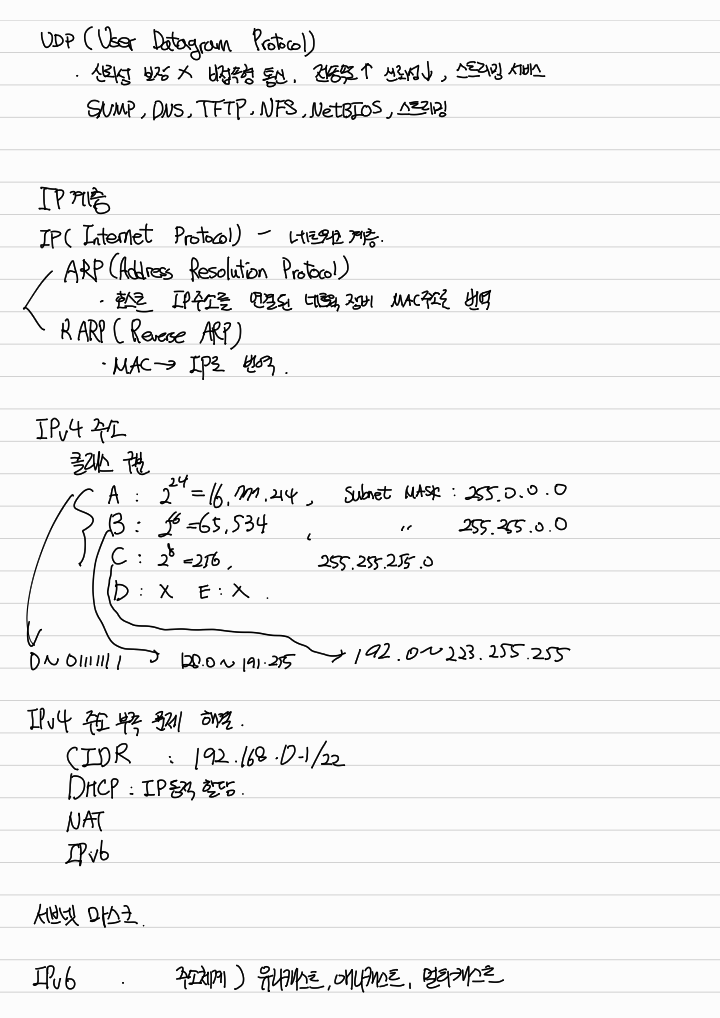 UDP (User Datagram Protocol)
· 신뢰성 보장 X 비접속형 통신. 전송속도↑ 신뢰성↓, 스트리밍 서비스
SNMP, DNS, TFTP, NFS, NetBIOS, 스트리밍
IP 계층
IP( Internet Protocol) - 네트워크 계층.
ARP (Address Resolution Protocol)
· 호스트 IP주소를 연결된 네트워크 장비 MAC주소로 번역
RARP ( Reverse ARP)
· MAC → IP로 번역.
IPv4 주소
클래스 구별
A : 2^24 = 16,777,214, Subnet MASK : 255.0.0.0
B : 2^16 = 65,534 , 〃 255.255.0.0
C : 2^8 = 256, 255.255.255.0
D : X E : X .
0~01111111 → 128.0~191.255 → 192.0~223.255.255
IPv4 주소 부족 문제 해결.
CIDR : 192.168.0.1/22
DHCP : IP 동적 할당.
NAT
IPv6
서브넷 마스크.
IPv6 . 주소체계) 유니캐스트, 애니캐스트, 멀티캐스트